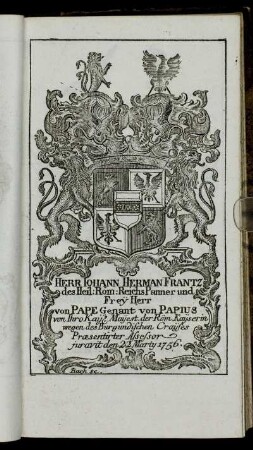 HERR IOHANN HERMAN FRANTZ
des Heil: Röm: Reichs Panner und
Freÿ Herr
von PAPE Genant von PAPIUS
von Ihro Kaÿs. Maÿest. der Röm. Kaÿserin
wegen des Burgundischen Craÿses
Præsentirter Assessor
juravit den 24 Marty 1756.
Bach sc.